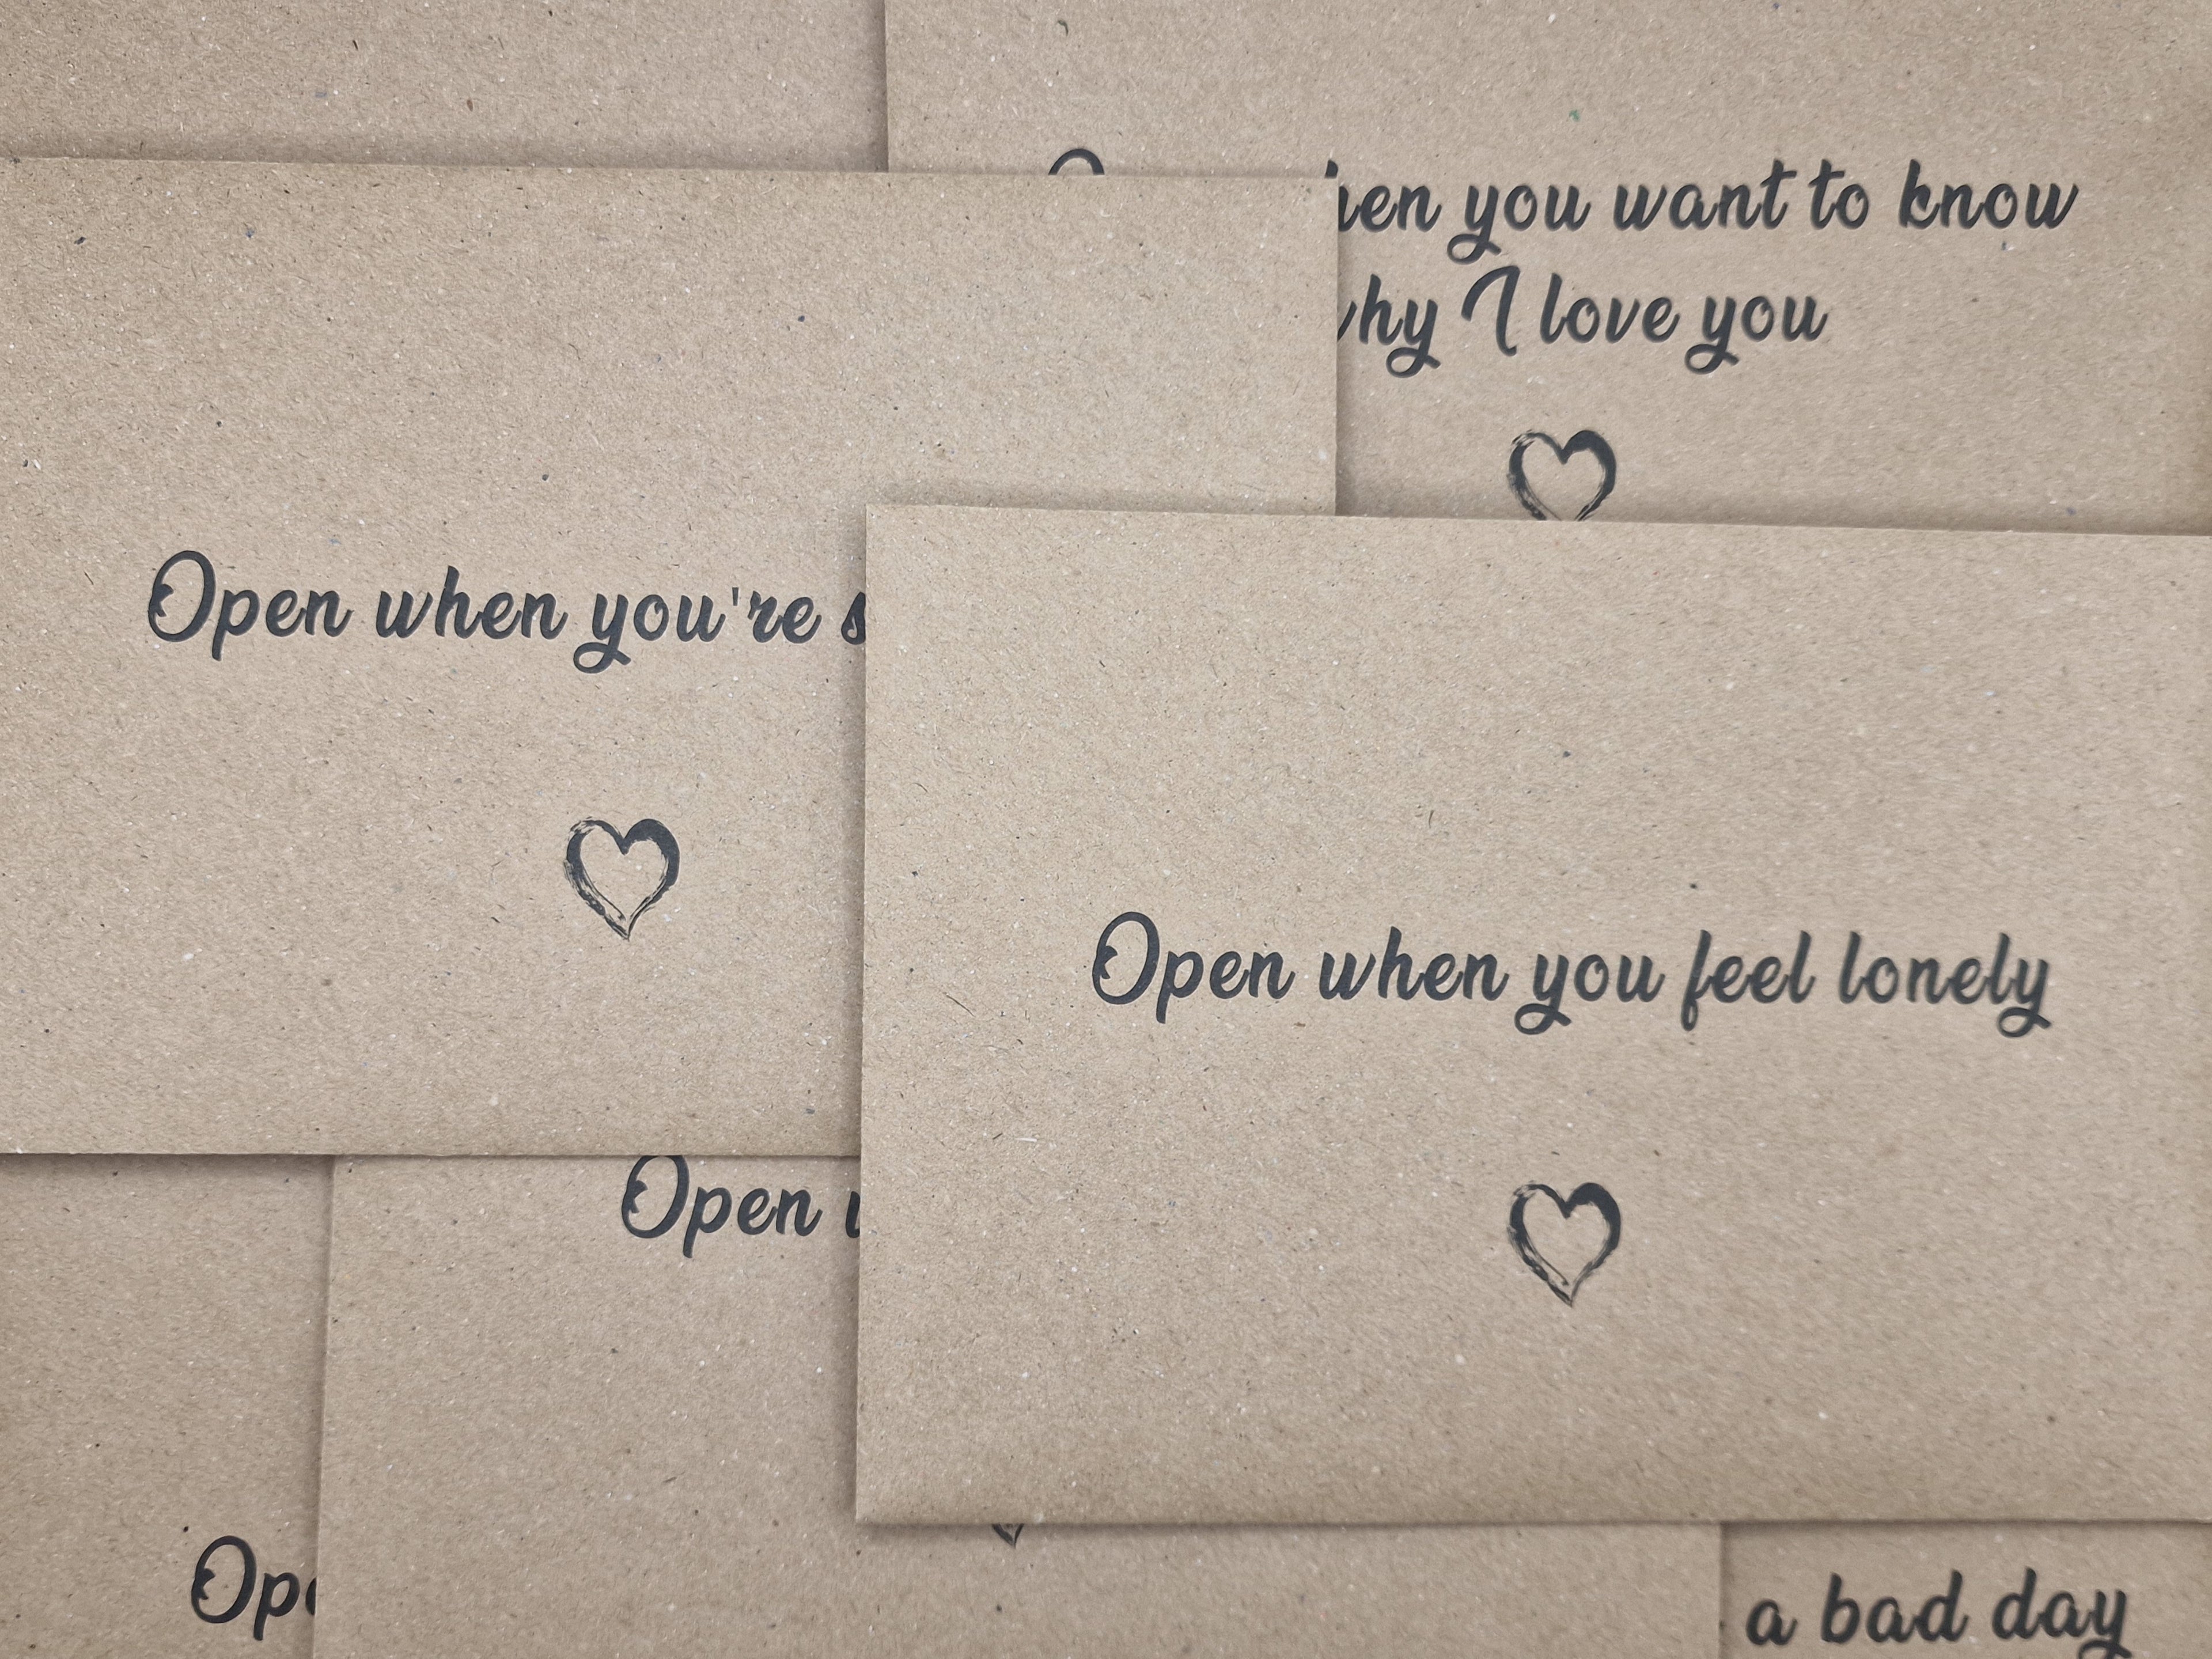 you want to know
I love you
Open when you're
Open when you feel lonely
Open
a bad day